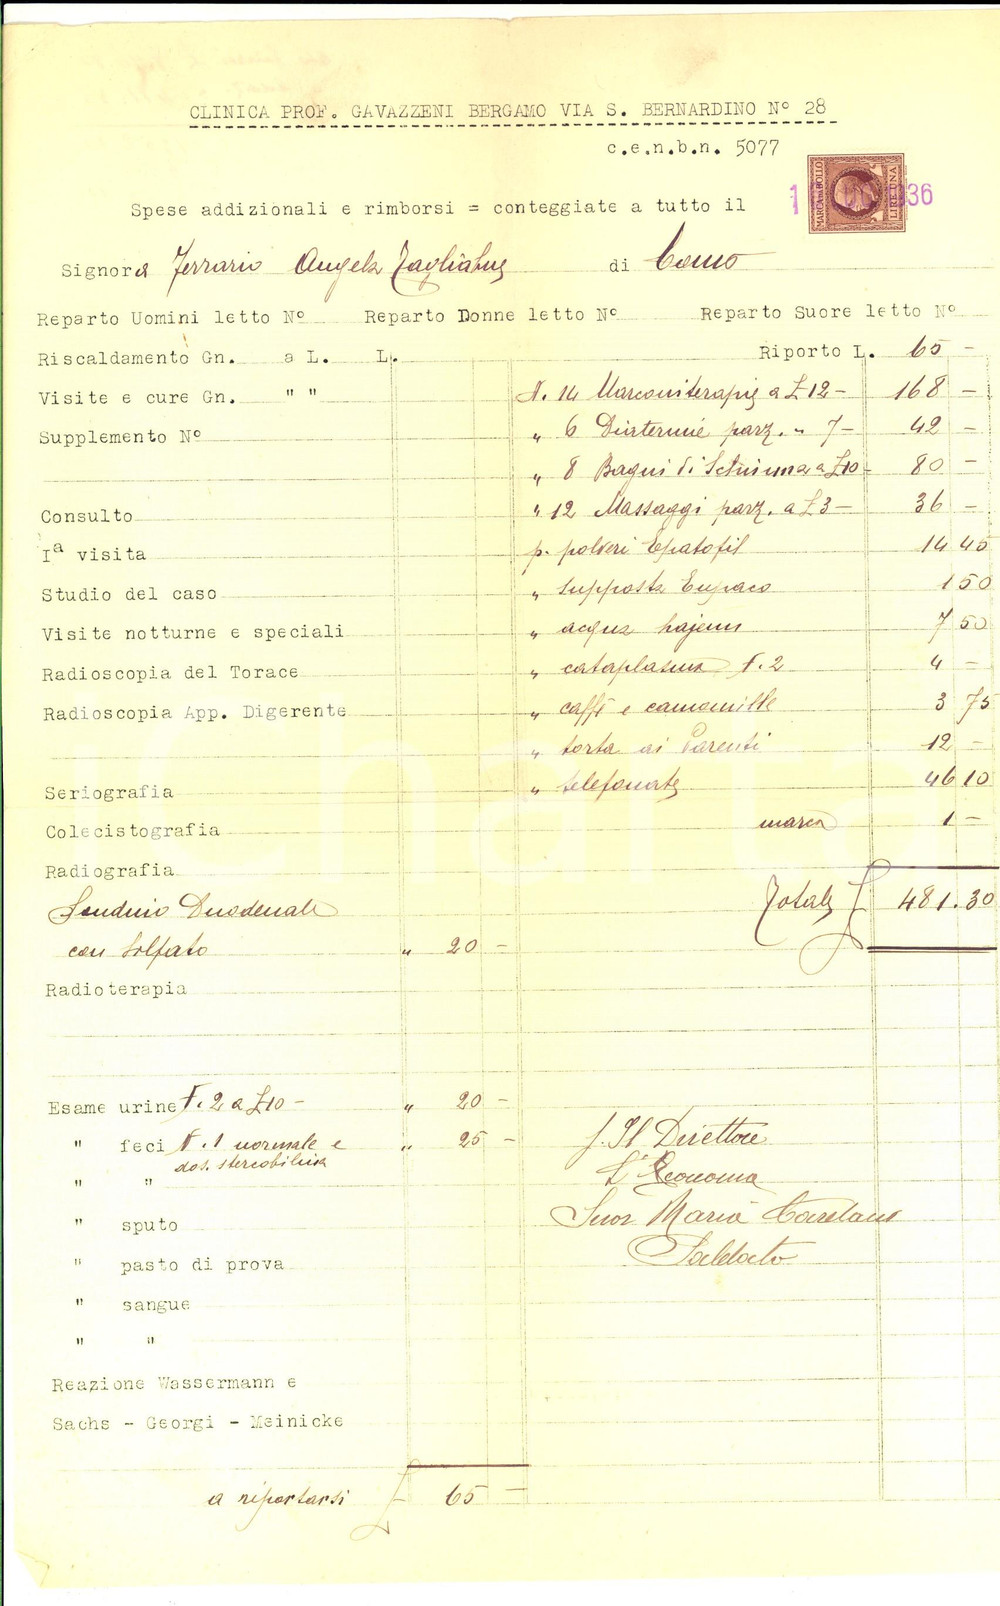 CLINICA PROF. GAVAZZENI BERGAMO VIA S. BERNARDINO N° 28
c.e.n.b.n. 5077
MARCA DA BOLLO
LIRE UNA
Spese addizionali e rimborsi = conteggiate a tutto il
Signora Ferrario Angela di Como
Reparto Uomini letto N° Reparto Donne letto N° Reparto Suore letto N°
Riscaldamento Gn. a L. L. Riporto L. 65 -
Visite e cure Gn. " " N. 14 Marconiterapie a £ 12 - 168 -
Supplemento N° " 6 Diatermie parz. " 7 - 42 -
" 8 Bagni di Schiuma a £ 10 - 80 -
Consulto " 12 Massaggi parz. a £ 3 - 36 -
Iª visita p. polveri Epatofil 14 45
Studio del caso " supposte 1 50
Visite notturne e speciali " acqua 7 50
Radioscopia del Torace " cataplasma N. 2 4 -
Radioscopia App. Digerente " caffè e camomille 3 75
" torta ai Parenti 12 -
Seriografia " telefonate 46 10
Colecistografia marca 1 -
Radiografia
Totale £ 481.30
Sondino Duodenale
con Solfato " 20 -
Radioterapia
Esame urine N. 2 a £ 10 - " 20 -
" feci N. 1 normale e " 25 -
dos. stercobilina
" "
" sputo
" pasto di prova
" sangue
" "
Reazione Wassermann e
Sachs - Georgi - Meinicke
a riportarsi £ 65 -
f. Il Direttore
L'Economa
Suor Maria
Saldato